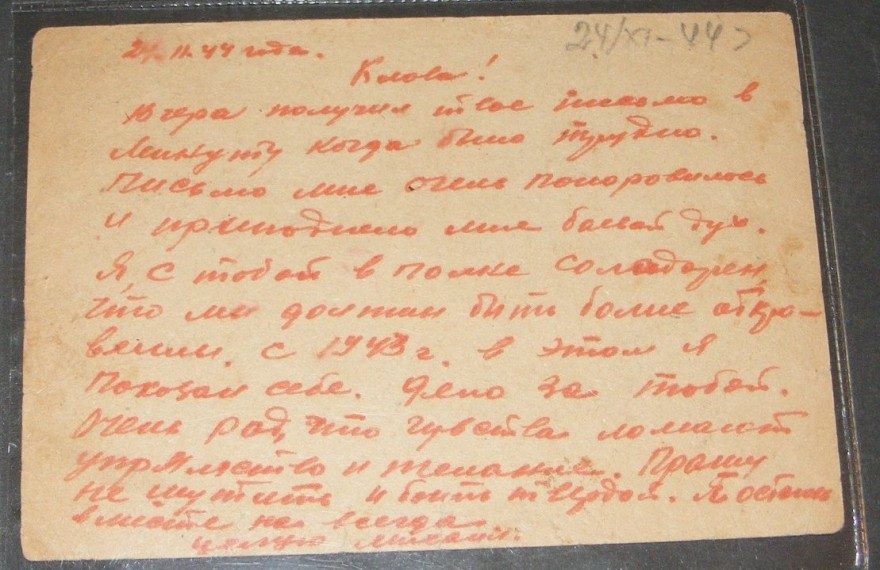 24/XI-44
24.11.44 года.
Клава!
Вчера получил твое письмо в
минуту когда было трудно.
Письмо мне очень понаровилось
и приподняло мне баевой дух.
Я, с тобой в полне солидарен,
что мы должан быть более откро-
венны. с 1943 г. в этом я
показал себе. Дело за тобой.
Очень рад что чувства ломают
упрямство и желание. Прашу
не шутить и быть твердой. Я
вместе на всегда
целую михаил.